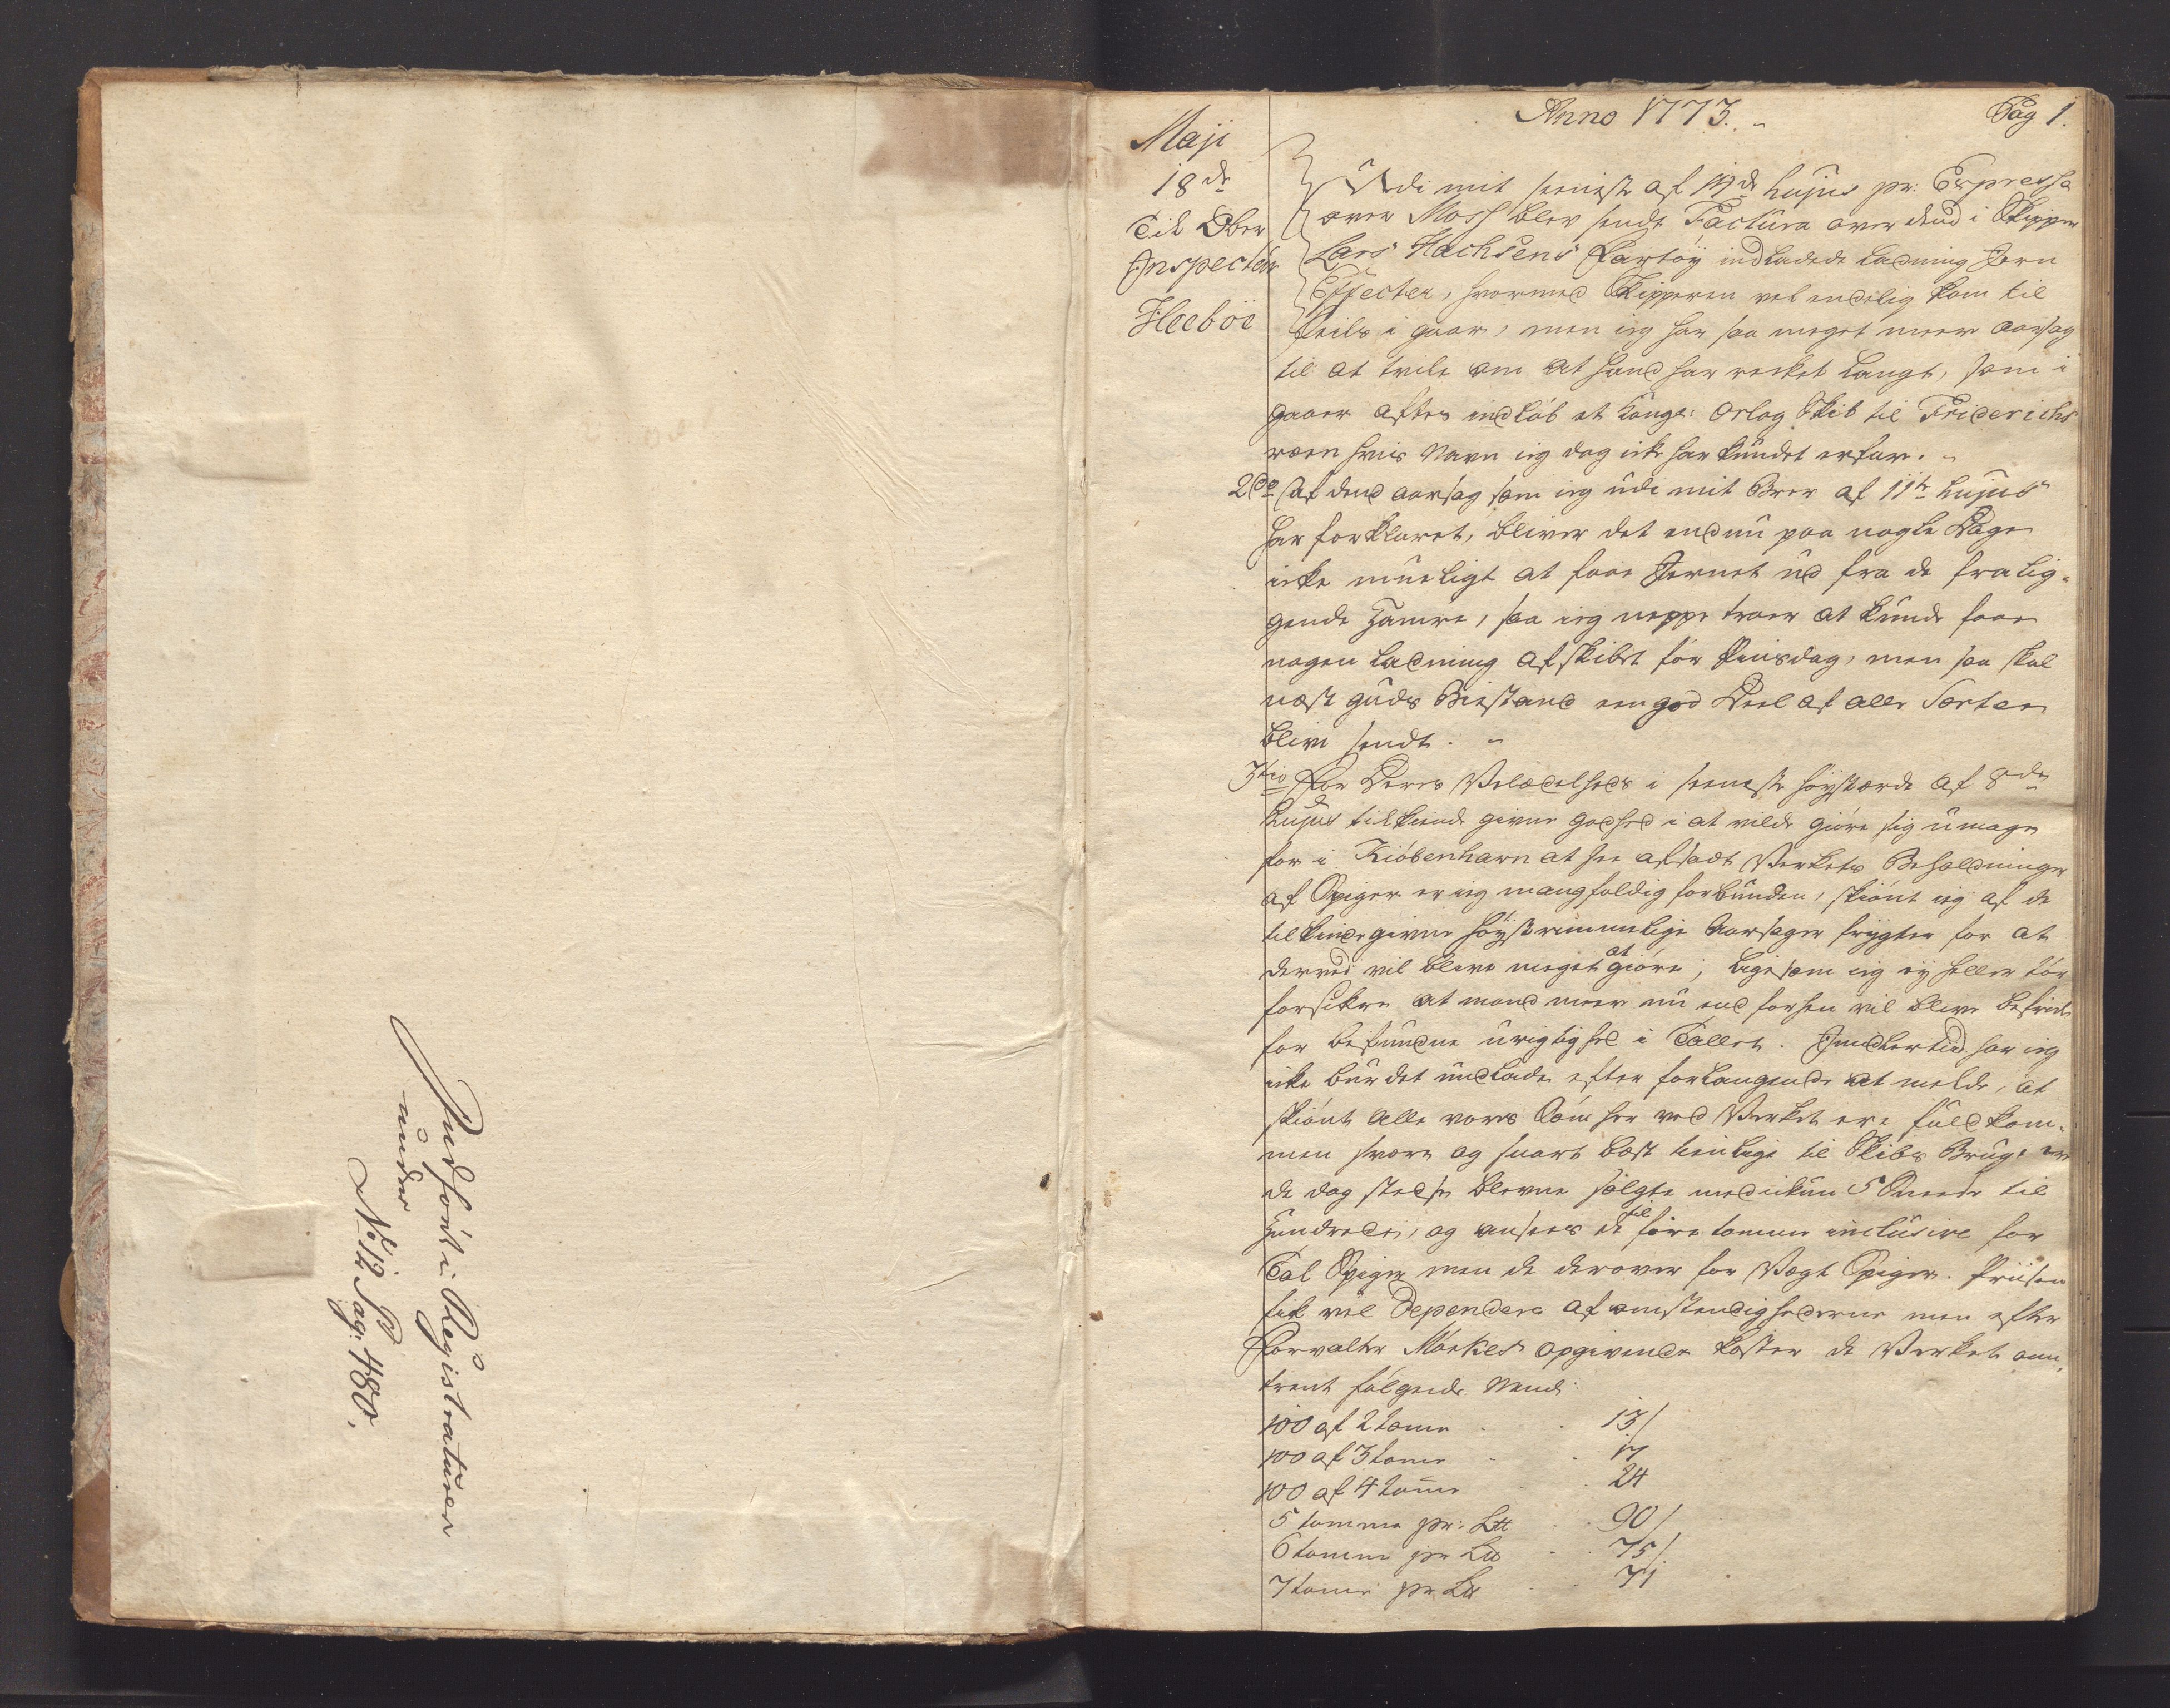 Indført i Registraturen
under
No 12 Pag: 480.
Anno 1773.
Pag 1.
Maji
18de
Til Ober
Inspecteur
Heeboe
Udi mit seeniste af 14de hujus pr: Expresse
over Moss blev sendt Factura over dend i Skipper
Lars Hachsens Fartöy indladede Ladning Jern
Effecter, hvormed Skipperen vel endelig kom til
Seils i gaar, men ieg har saa meget meere aarsag
til at tvile om at hand har recket langt, som i
gaaer aftes indløb et Kongl: Orlog Skib til Friderichs
væren hvis Navn ieg dog icke har kundet erfare.
2do Af dend aarsag som ieg udi mit Brev af 11te hujus
har forklaret, bliver det endnu paa nogle Dage
icke mueligt at faae Jernet ud fra de fralig-
gende Hamre, saa ieg neppe troer at kunde faae
nogen Ladning afskibet før Pinsdag, men saa skal
næst Guds Bistand een god Deel af alle Sorter
blive sendt.
3tio For Deres Velædelheds i seeneste høystærede af 8de
hujus tilkiende givne godhed i at vilde giøre sig umage
for i Kiøbenhavn at see afsadt Verkets Beholdninger
af Spiger er ieg mangfoldig forbunden, skiønt ieg af de
tilkiende givne høystrimmelige Aarsager frygter for at
derved vil blive meget at giøre; ligesom ieg ey heller tør
forsikre at mand meere nu end forhen vil blive befriet
for befundne urigtighed i Tallet. Imidlertid har ieg
icke burdet undlade efter forlangende at melde, at
skiønt alle vores Søm her ved Verket ere fuldkom-
men svære og snart best tienlige til Skibs Brug, er
de dog stedse blevne solgte med ickun 5 Sneese til
Hundrede, og ansees de til fire tomme inclusive for
Tal Spiger men de derover for Vægt Spiger. Priisen
fik vel Dependere af omstendighederne men efter
Forvalter Mørkes opgivende koster de Verket om-
trent følgende Nemlig:
100 af 2 tome 13/
100 af 3 tome 17
100 af 4 tome 24
5 tomme pr: L℔ 90/
6 tomme pr L℔ 75/
7 tome pr L℔ 71